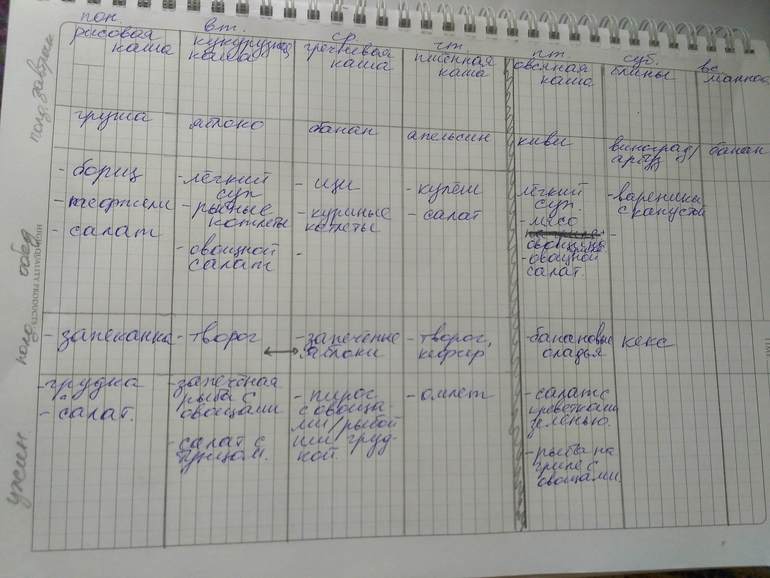 пон. вт. ср чт. пт. суб. вс
рисовая каша
кукурузная каша
гречневая каша
пшённая каша
овсяная каша
блины
манная
полд завтрак
груша
яблоко
банан
апельсин
киви
виноград/
арбуз
банан
обед
- борщ
- тефтели
- салат
- лёгкий
суп
- рыбные
котлеты
- овощной
салат
- щи
- куриные
котлеты
-
- кулеш
- салат
лёгкий
суп
- мясо
овощи
- овощной
салат.
- вареники
с капустой
-
полд
- запеканка
- творог
- запечёные
яблоки
- творог,
кефир
- банановые
оладья
кекс
ужин
- грудка
- салат.
- запечёная
рыба с
овощами
- салат с
тунцом.
- пирог
с овоща
ми/рыбой
или груд-
кой.
- омлет
- салат с
креветками
зеленью.
- рыба на
гриле с
овощами.
HIGH QUALITY PRODUCT